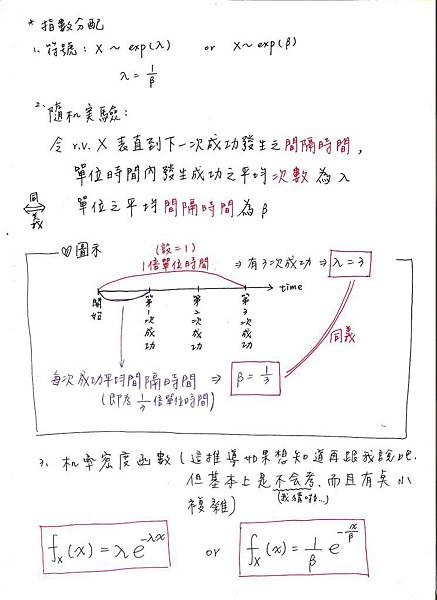 * 指數分配
1. 符號：X ~ exp(λ) or X ~ exp(β)
λ = 1/β
2. 隨机實驗：
令 r.v. X 表直到下一次成功發生之間隔時間，
單位時間內發生成功之平均次數為 λ
同義
單位之平均間隔時間為 β
圖示
(設=1)
1倍單位時間 ⇒ 有3次成功 ⇒ λ=3
time
開始
第1次成功
第2次成功
第3次成功
同義
每次成功平均間隔時間 ⇒ β = 1/3
(即為 1/3 倍單位時間)
3. 机率密度函數 (這推導如果想知道再跟我說吧.
但基本上是不會考、而且有點小
(我猜啦...)
複雜)
fx(x) = λe^-λx or fx(x) = 1/β e^-x/β